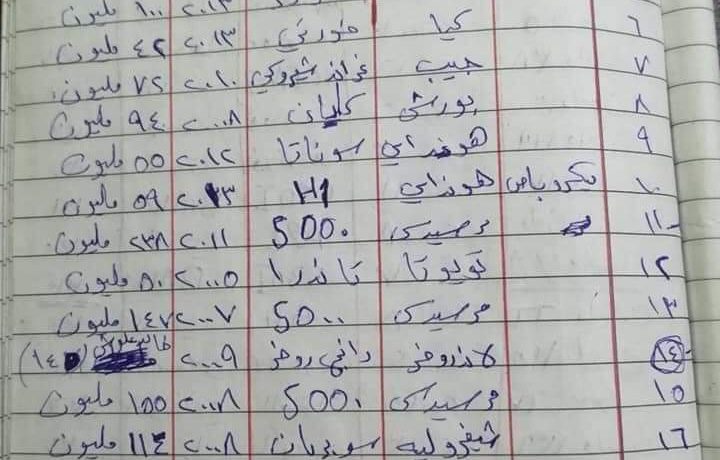 ١٠٠ مليون
٦ كيا فورتي ٢٠١٣ ٤٢ مليون
٧ جيب غراند شيروكي ٢٠١٠ ٧٢ مليون
٨ بورش كايان ٢٠٠٨ ٩٤ مليون
٩ هونداي سوناتا ٢٠١٢ ٥٥ مليون
١٠ مكروباص هونداي H1 ٢٠١٣ ٥٩ مليون
١١ مرسيدس S 500 ٢٠١١ ٢٣٨ مليون
١٢ تويوتا تاندرا ٢٠٠٥ ٨٠ مليون
١٣ مرسيدس S 500 ٢٠٠٧ ١٤٧ مليون
١٤ لاندروفر رانج روفر ٢٠٠٩
١٥ مرسيدس S 500 ٢٠٠٨ ١٥٥ مليون
١٦ شيفروليه سوبربان ٢٠٠٨ ١١٤ مليون